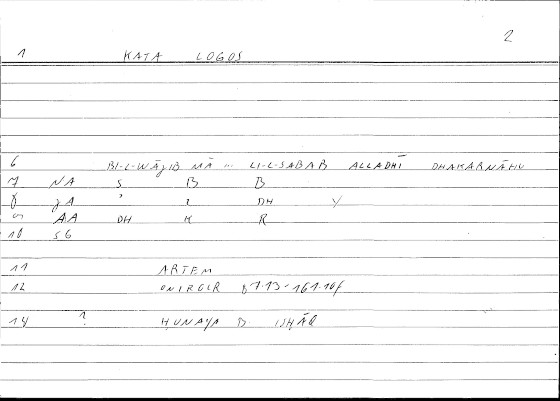 2
1 KATA LOGOS
6 BI-L-WĀJIB MĀ ... LI-L-SABAB ALLADHĪ DHAKARNĀHU
7 NA S B B
8 JA ' 2 DH Y
9 AA DH K R
10 56
11 ARTEM
12 ONIROCR
14 ? ḤUNAYN B. ISḤĀQ